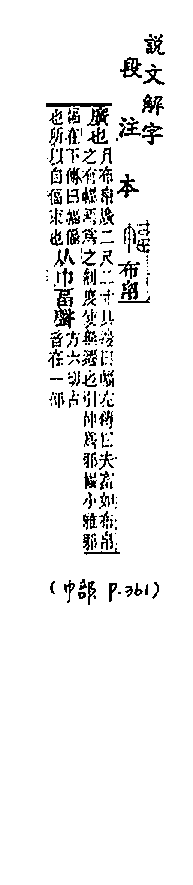 説文解字
段注本
布帛
廣也凡布帛廣二尺二寸其邊曰幅左傳曰夫富如布帛
之有幅焉爲之制度使無遷也引伸爲邪幅小雅邪
幅在下傳曰幅偪
也所以自偪束也
从巾畐聲
方六切古
音在一部
(巾部 P.361)